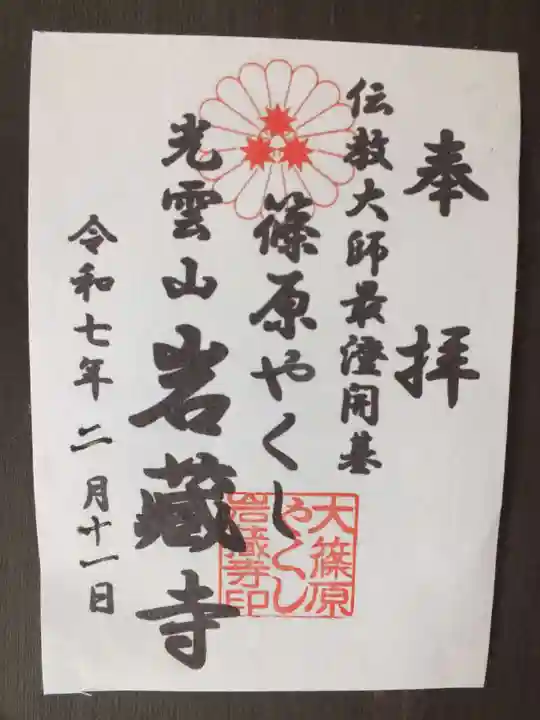 奉拝
伝教大師最澄開基
篠原やくし
光雲山岩蔵寺
令和七年二月十一日
大篠原
やくし
岩蔵寺印